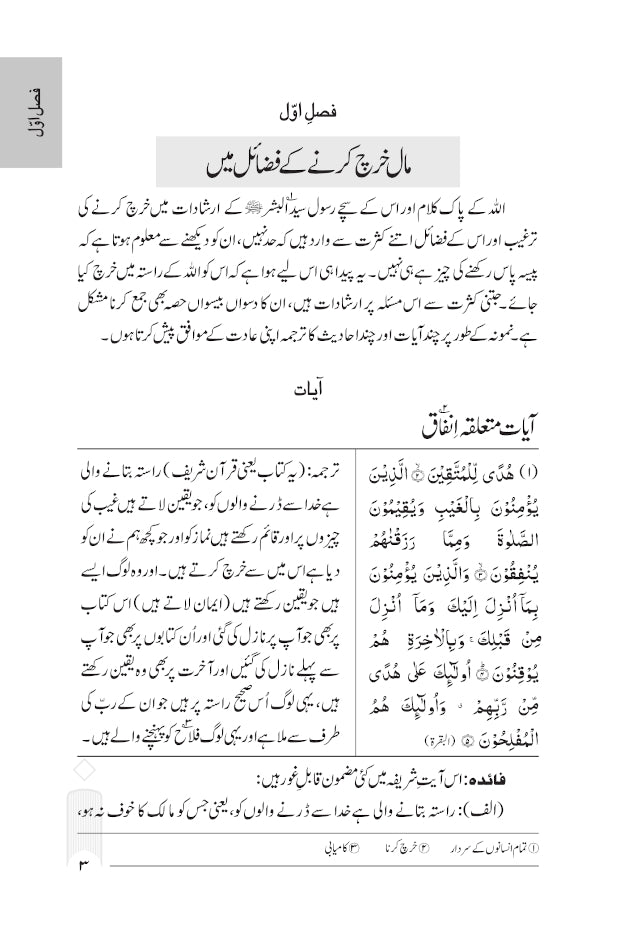 فصل اوّل
فصلِ اوّل
مال خرچ کرنے کے فضائل میں
اللہ کے پاک کلام اور اس کے سچے رسول سید البشر ﷺ کے ارشادات میں خرچ کرنے کی
ترغیب اور اس کے فضائل اتنے کثرت سے وارد ہیں کہ حد نہیں، ان کو دیکھنے سے معلوم ہوتا ہے کہ
پیسہ پاس رکھنے کی چیز ہے ہی نہیں۔ یہ پیدا ہی اس لیے ہوا ہے کہ اس کو اللہ کے راستہ میں خرچ کیا
جائے۔ جتنی کثرت سے اس مسئلہ پر ارشادات ہیں، ان کا دسواں بیسواں حصہ بھی جمع کرنا مشکل
ہے۔ نمونہ کے طور پر چند آیات اور چند احادیث کا ترجمہ اپنی عادت کے موافق پیش کرتا ہوں۔
آیات
آیات متعلقہ اِنفاق
(۱) هُدًى لِّلْمُتَّقِيْنَ ۝۲ الَّذِيْنَ
يُؤْمِنُوْنَ بِالْغَيْبِ وَيُقِيْمُوْنَ
الصَّلٰوةَ وَمِمَّا رَزَقْنٰهُمْ
يُنْفِقُوْنَ ۝۳ وَالَّذِيْنَ يُؤْمِنُوْنَ
بِمَآ اُنْزِلَ اِلَيْكَ وَمَآ اُنْزِلَ
مِنْ قَبْلِكَ ۚ وَبِالْاٰخِرَةِ هُمْ
يُوْقِنُوْنَ ۝۴ اُولٰٓئِكَ عَلٰى هُدًى
مِّنْ رَّبِّهِمْ ۙ وَاُولٰٓئِكَ هُمُ
الْمُفْلِحُوْنَ ۝۵ (البقرة)
ترجمہ: (یہ کتاب یعنی قرآن شریف) راستہ بتانے والی
ہے خدا سے ڈرنے والوں کو، جو یقین لاتے ہیں غیب کی
چیزوں پر اور قائم رکھتے ہیں نماز کو اور جو کچھ ہم نے ان کو
دیا ہے اس میں سے خرچ کرتے ہیں۔ اور وہ لوگ ایسے
ہیں جو یقین رکھتے ہیں (ایمان لاتے ہیں) اس کتاب
پر بھی جو آپ پر نازل کی گئی اور اُن کتابوں پر بھی جو آپ
سے پہلے نازل کی گئیں اور آخرت پر بھی وہ یقین رکھتے
ہیں، یہی لوگ اُس صحیح راستہ پر ہیں جو ان کے ربّ کی
طرف سے ملا ہے اور یہی لوگ فلاح کو پہنچنے والے ہیں۔
فائدہ: اس آیتِ شریفہ میں کئی مضمون قابلِ غور ہیں:
(الف): راستہ بتانے والی ہے خدا سے ڈرنے والوں کو، یعنی جس کو مالک کا خوف نہ ہو،
① تمام انسانوں کے سردار ② خرچ کرنا ③ کامیابی
۳